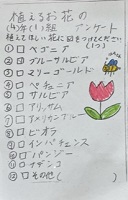 植えるお花の
(4)年(1)組 アンケート
植えてほしい花に☑をつけてください
(1つ)
1 □ ベゴニア
2 □ ブルーサルビア
3 □ マリーゴールド
4 □ ペチュニア
5 □ サルビア
6 □ アリッサム
7 □ アメリカンブルー
8 □ ビオラ
9 □ インパチェンス
10 □ パンジー
11 □ ナデシコ
12 □ その他( )